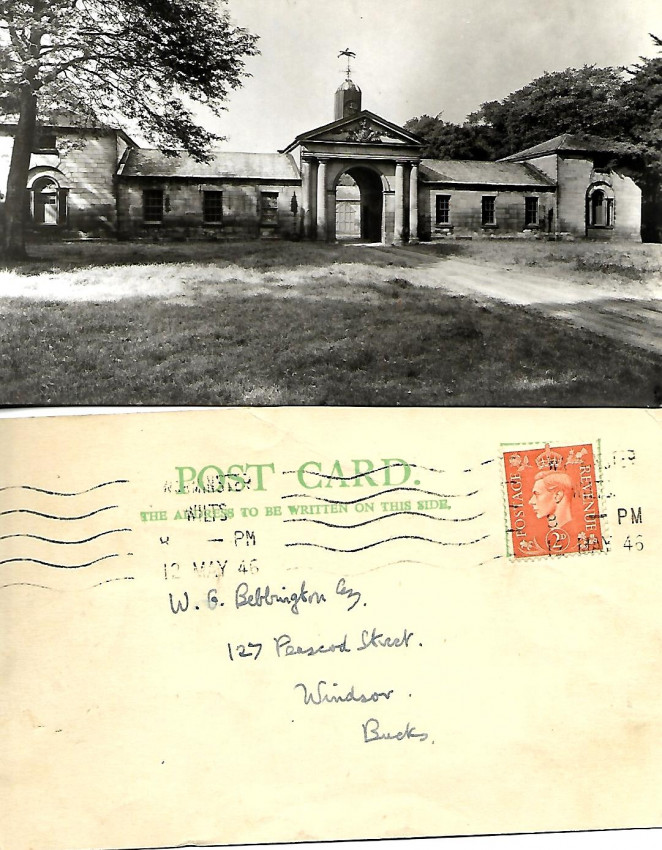 POST CARD.
THE ADDRESS TO BE WRITTEN ON THIS SIDE.
WILTS
8 - PM
12 MAY 46
POSTAGE REVENUE
2D
- PM
12 MAY 46
W. G. Bebbington Esq.
127 Peascod Street.
Windsor.
Bucks.